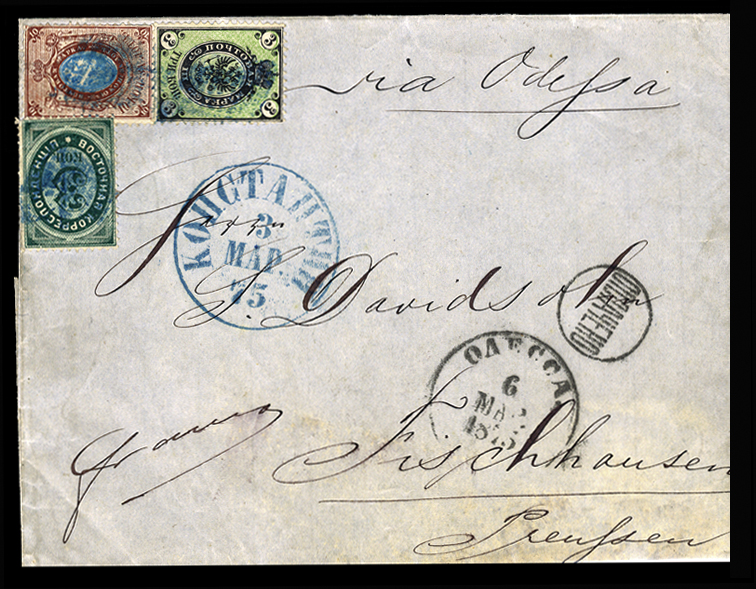 via Odessa
3 3
ТРИ КОП
ПОЧТОВАЯ МАРКА
ВОСТОЧНАЯ КОРРЕСПОНДЕНЦІЯ
КОП
КОНСТАНТИН
3
МАР.
75
Herrn
S. Davidsohn
ОПЛАЧЕНО
ОДЕССА
6
МАР.
1875
franco
Fischhausen
Preußen